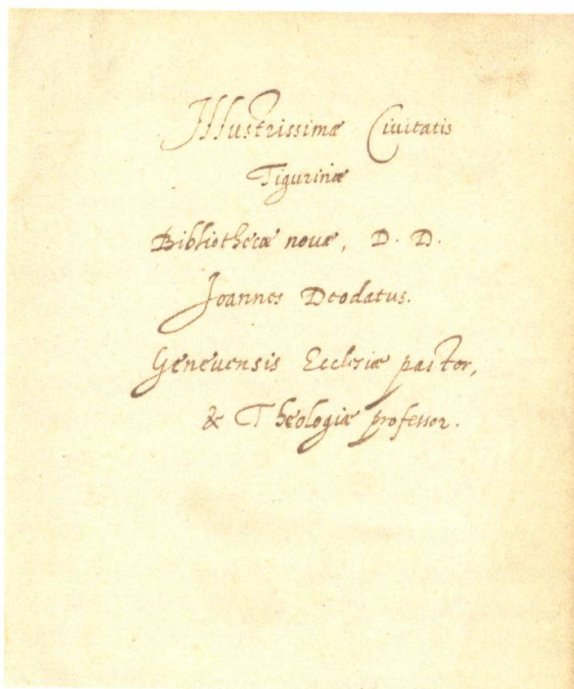 Illustrissimæ Ciuitatis
Tigurinæ
Bibliothecæ nouæ, D. D.
Joannes Deodatus.
Geneuensis Ecclesiæ pastor,
& Theologiæ professor.